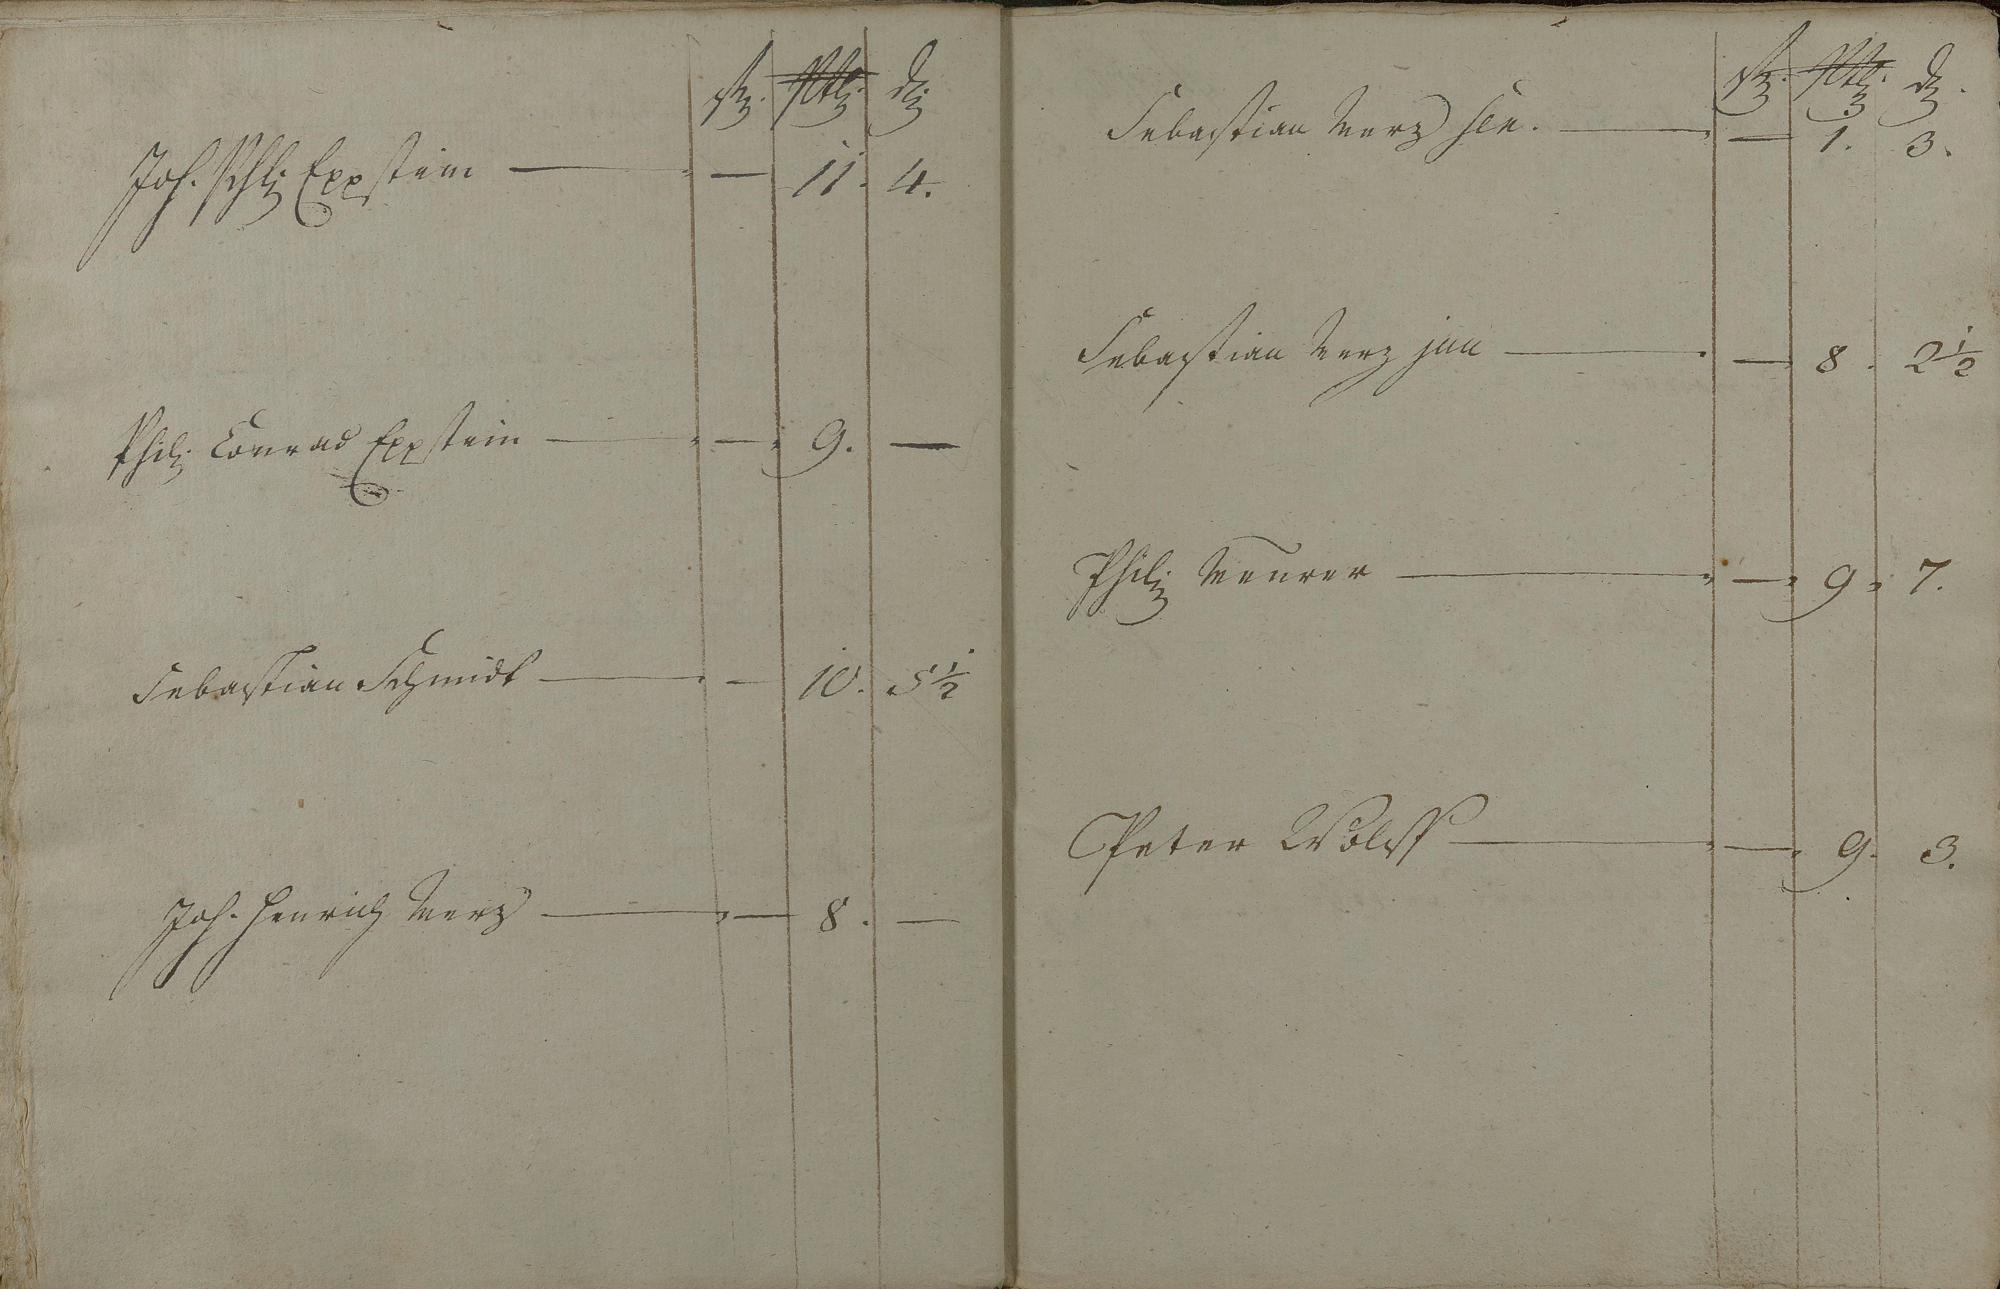 Joh. Phlj Eppstein — — 11. 4.
Philj. Conrad Eppstein — — 9. —
Sebastian Schmidt — — 10. 5 1/2
Joh. Henrich Merz — — 8. —
Sebastian Merz sen. — — 1. 3.
Sebastian Merz jun — — 8. 2 1/2
Philj Meurer — — 9. 7.
Peter Wolff — — 9. 3.